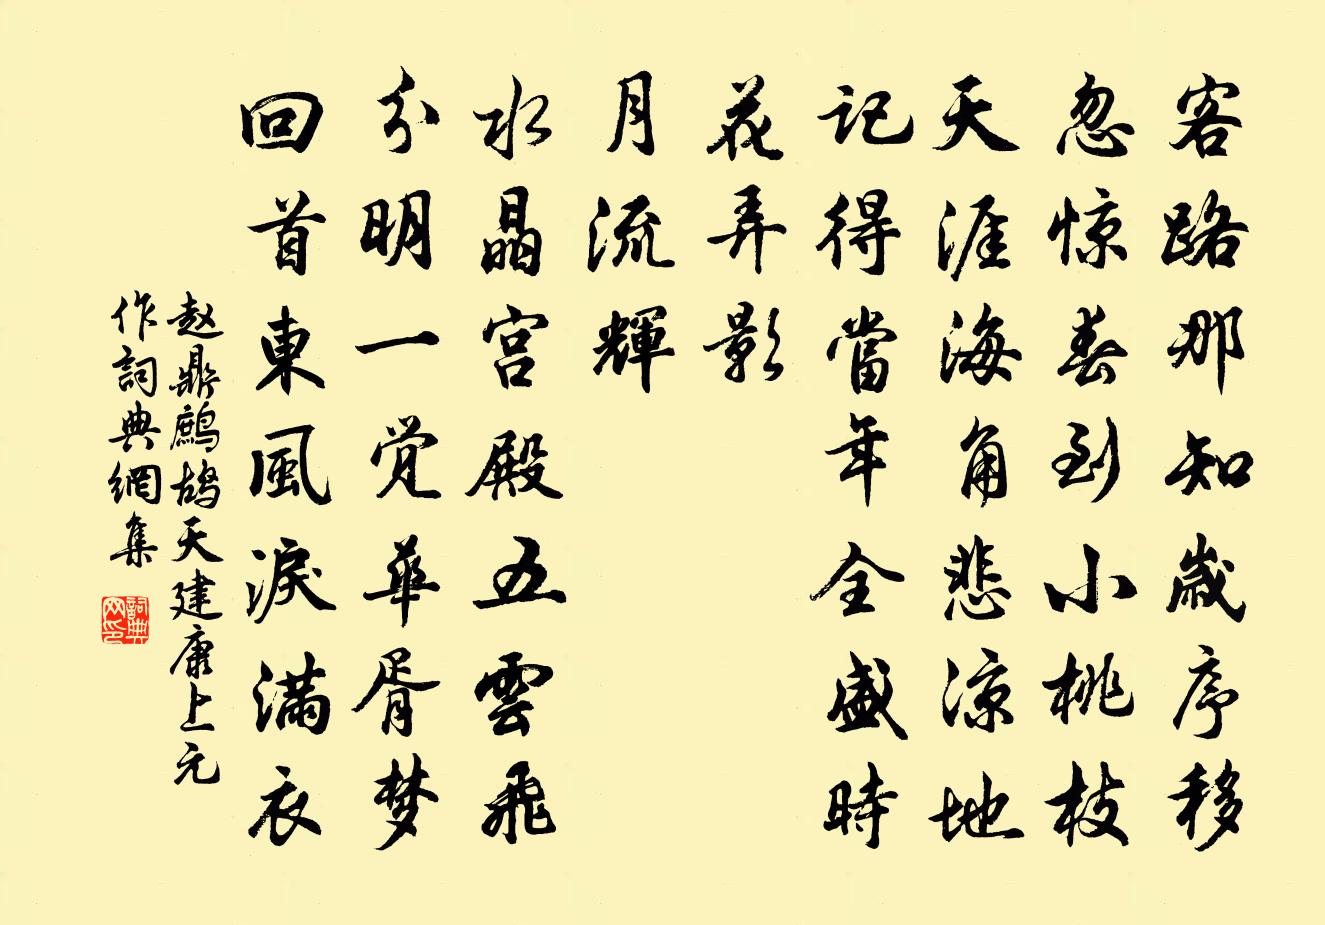 客路那知歲序移
忽惊春到小桃枝
天涯海角悲涼地
記得當年全盛時
花弄影
月流輝
水晶宮殿五雲飛
分明一覺華胥夢
回首東風淚滿衣
赵鼎鷓鴣天建康上元
作詞典網集
詞典
网印